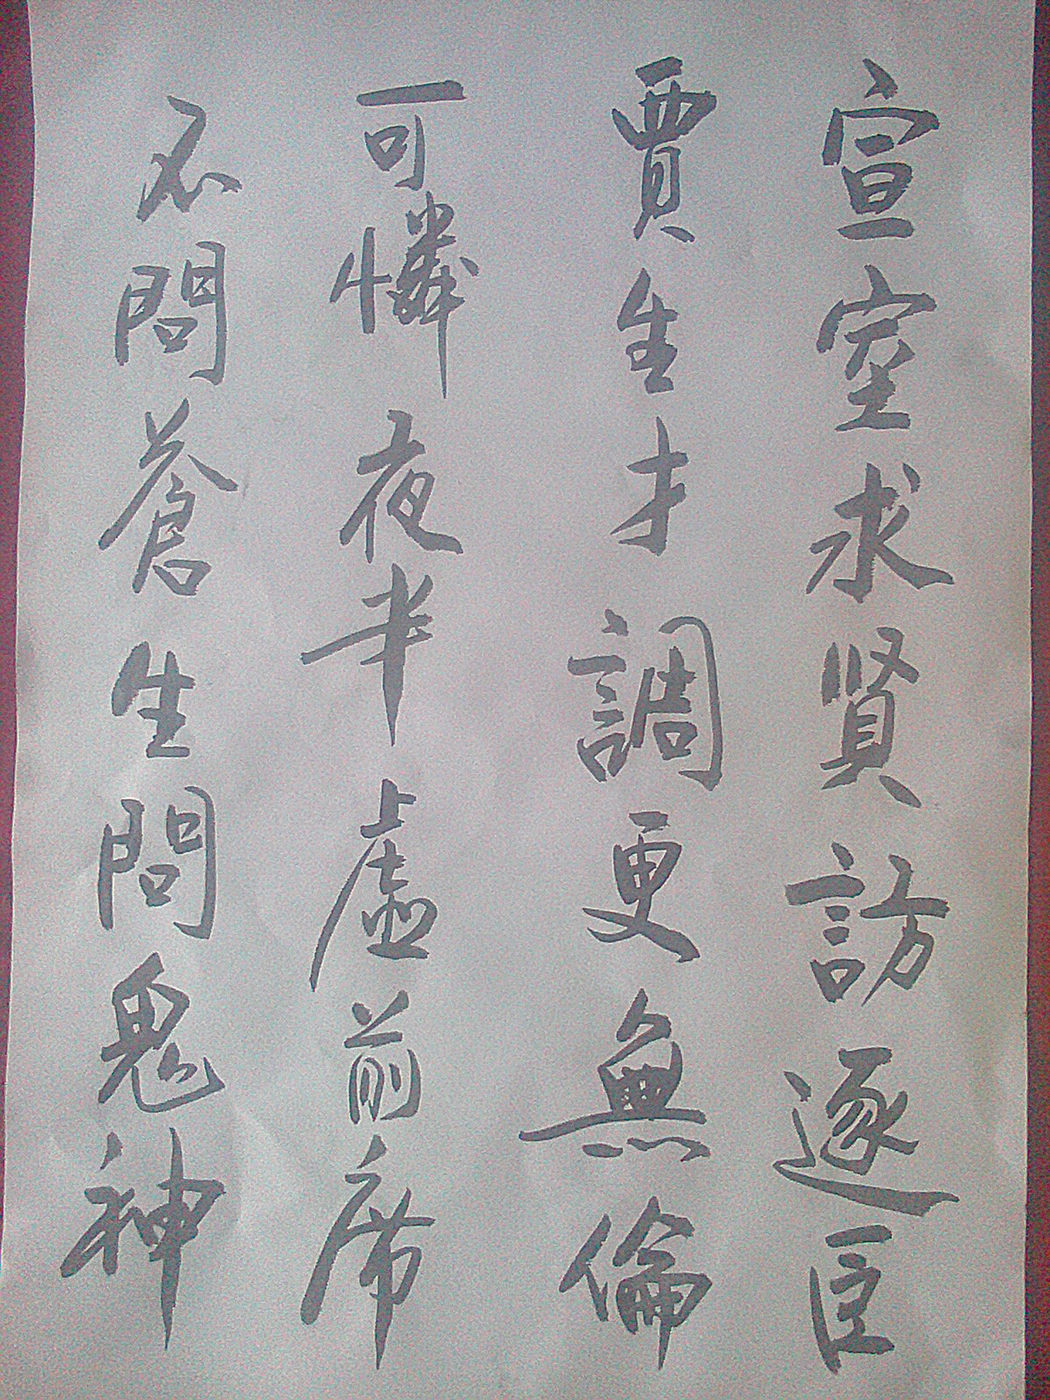 宣室求賢訪逐臣
賈生才調更無倫
可憐夜半虛前席
不問蒼生問鬼神